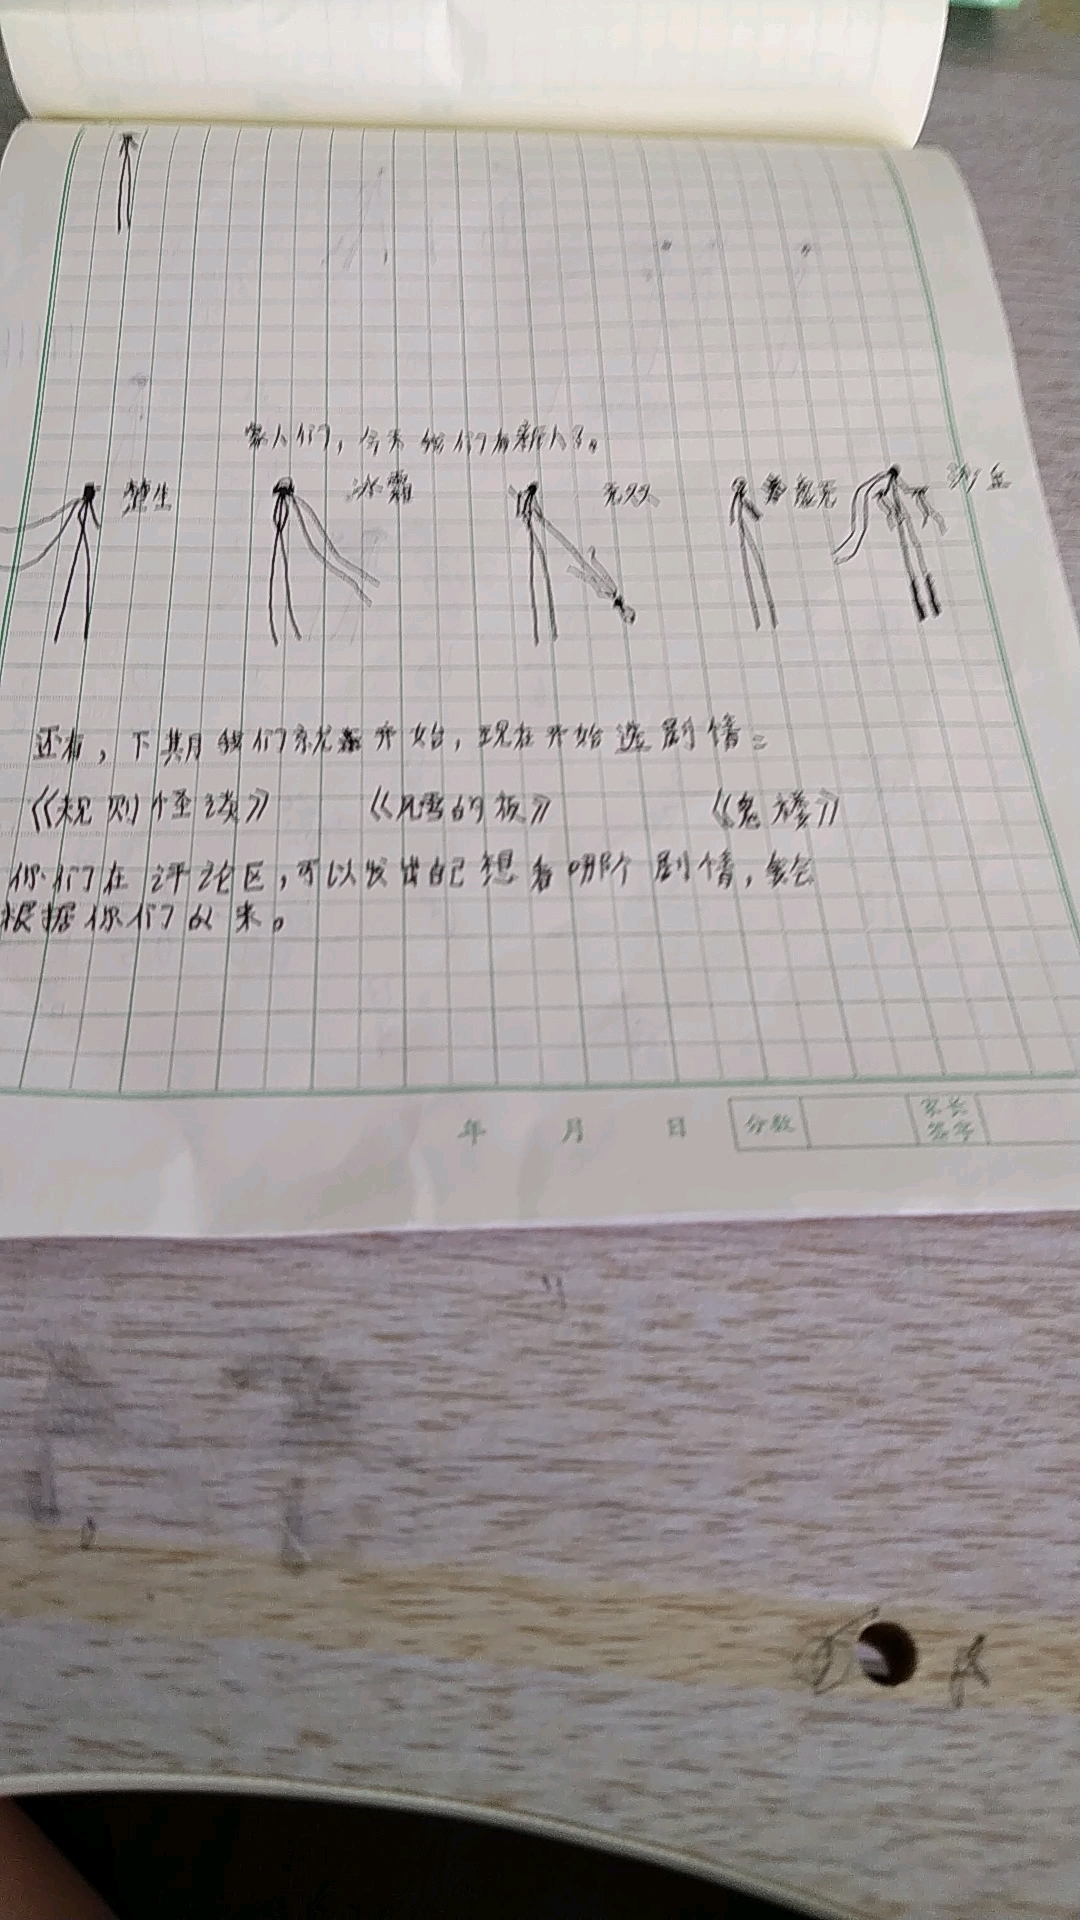 家人们，今天我们有新人了。
楚生 冰霜 无双 沙丘
还有，下期我们就要开始，现在开始选剧情：
《规则怪谈》 《风雪的板》 《鬼楼》
你们在评论区，可以发出自己想看哪个剧情，我会
根据你们的来。
年 月 日 分数 家长签字